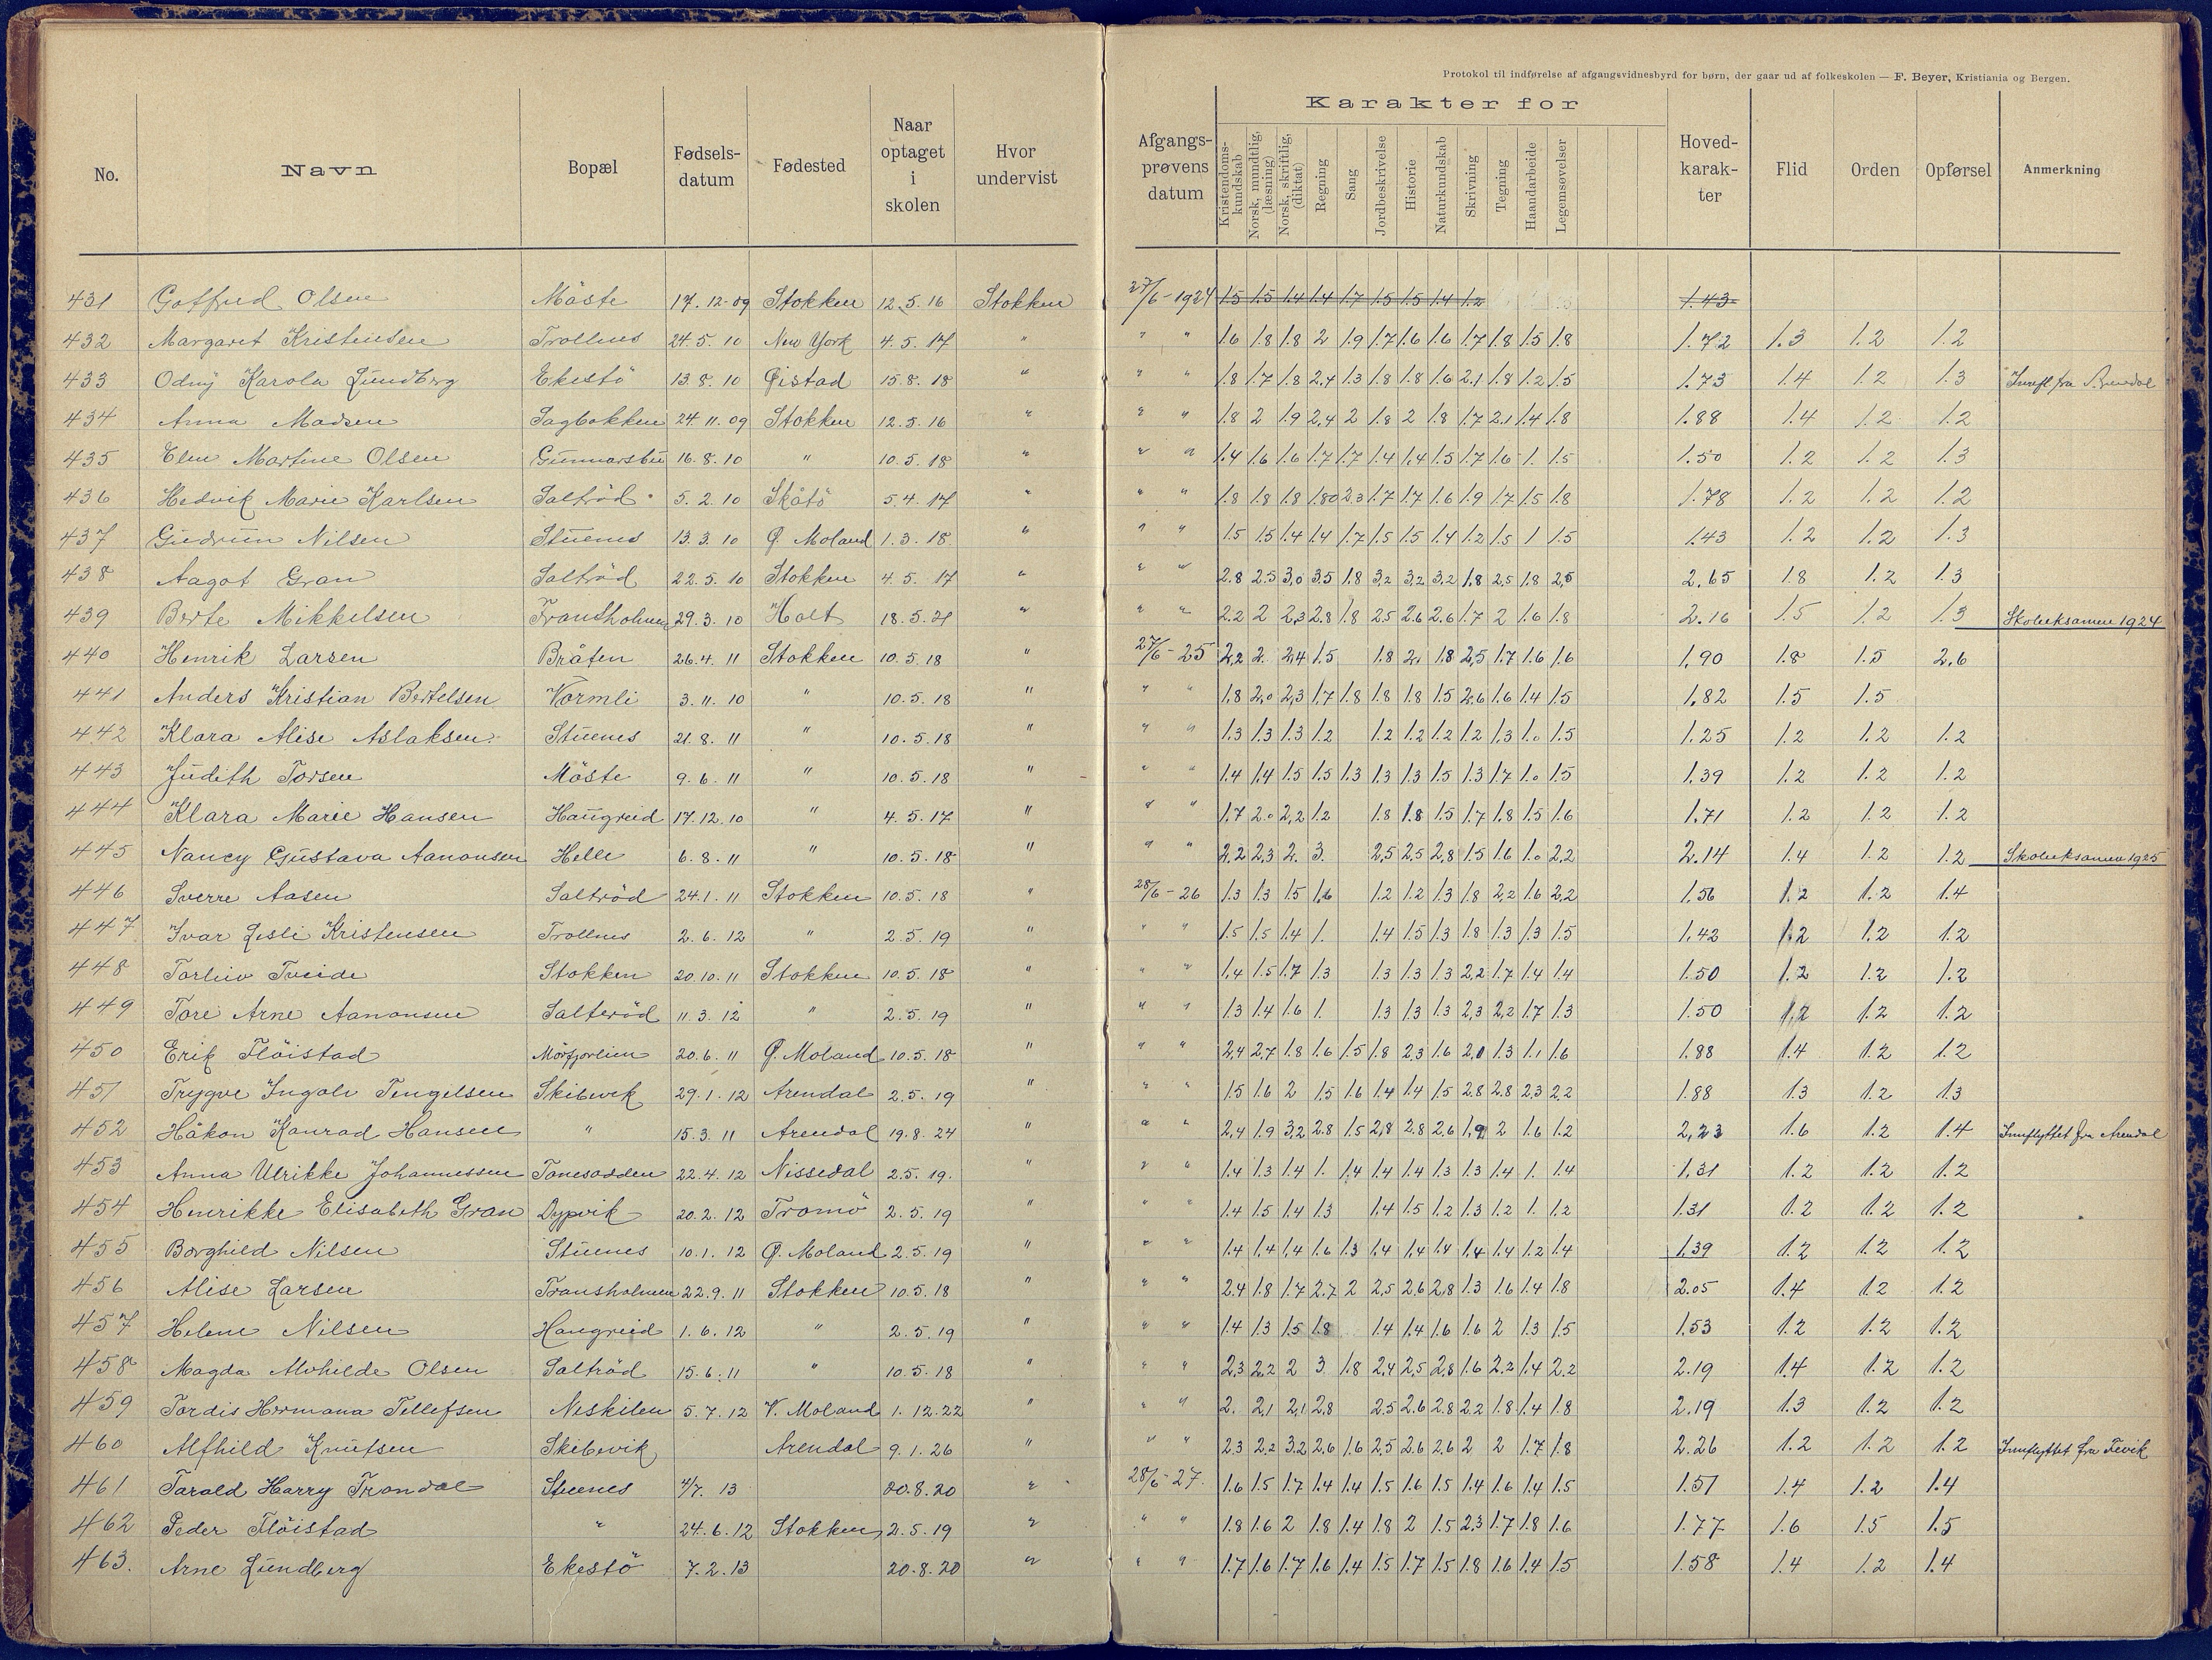 Protokol til indførelse af afgangsvidnesbyrd for børn, der gaar ud af folkeskolen — F. Beyer, Kristiania og Bergen.
No. Navn Bopæl Fødsels-datum Fødested Naar optaget i skolen Hvor undervist Afgangs-prøvens datum Karakter for Kristendoms-kundskab Norsk, mundtlig, (læsning) Norsk, skriftlig, (diktat) Regning Sang Jordbeskrivelse Historie Naturkundskab Skrivning Tegning Haandarbeide Legemsøvelser Hoved-karak-ter Flid Orden Opførsel Anmerkning
431 Gotfred Olsen Måste 17.12.09 Stokken 12.5.16 Stokken 27/6-1924 1.5 1.5 1.4 1.4 1.7 1.5 1.5 1.4 1.2 1.43
432 Margaret Kristensen Trollnes 24.5.10 New York 4.5.17 " " " 1.6 1.8 1.8 2 1.9 1.7 1.6 1.6 1.7 1.8 1.5 1.8 1.72 1.3 1.2 1.2
433 Odny Karola Lundberg Ekestö 13.8.10 Öistad 15.8.18 " " " 1.8 1.7 1.8 2.4 1.3 1.8 1.8 1.6 2.1 1.8 1.2 1.5 1.73 1.4 1.2 1.3 Innfl. fra Arendal
434 Anna Madsen Sagbakken 24.11.09 Stokken 12.5.16 " " " 1.8 2 1.9 2,4 2 1.8 2 1.8 1.7 2.1 1.4 1.8 1.88 1.4 1.2 1.2
435 Elen Martine Olsen Gunnarsbu 16.8.10 " 10.5.18 " " " 1.4 1.6 1.6 1.7 1.7 1.4 1.4 1.5 1.7 1.6 1. 1.5 1.50 1.2 1.2 1.3
436 Hedvik Marie Karlsen Saltröd 5.2.10 Skåtö 5.4.17 " " " 1.8 1.8 1.8 1.80 2.3 1.7 1.7 1.6 1.9 1.7 1.5 1.8 1.78 1.2 1.2 1.2
437 Gudrun Nilsen Stuenes 13.3.10 Ø. Moland 1.3.18 " " " 1.5 1.5 1.4 1.4 1.7 1.5 1.5 1.4 1.2 1.5 1 1.5 1.43 1.2 1.2 1.3
438 Aagot Gran Saltröd 22.5.10 Stokken 4.5.17 " " " 2.8 2.5 3,0 3.5 1.8 3,2 3,2 3,2 1,8 2,5 1.8 2,5 2,65 1.8 1.2 1.3
439 Berte Mikkelsen Fransholmen 29.3.10 Holt 18.5.21 " " " 2.2 2 2,3 2.8 1.8 2.5 2.6 2.6 1.7 2 1.6 1.8 2.16 1.5 1.2 1.3 Skoleeksamen 1924
440 Henrik Larsen Bråten 26.4.11 Stokken 10.5.18 " 27/6-25 2,2 2. 2,4 1.5 1.8 2. 1.8 2,5 1.7 1.6 1.6 1,90 1.8 1.5 2,6
441 Anders Kristian Bertelsen Vormli 3.11.10 " 10.5.18 " " " 1,8 2,0 2,3 1,7 1.8 1.8 1.8 1.5 2.6 1.6 1.4 1.5 1,82 1.5 1.5
442 Klara Alise Aslaksen Stuenes 21.8.11 " 10.5.18 " " " 1.3 1.3 1.3 1.2 1.2 1.2 1.2 1.2 1.3 1.0 1.5 1.25 1.2 1.2 1.2
443 Judith Torsen Måste 9.6.11 " 10.5.18 " " " 1.4 1.4 1.5 1.5 1.3 1.3 1.3 1.5 1.3 1.7 1.0 1.5 1.39 1.2 1.2 1.2
444 Klara Marie Hansen Haugreid 17.12.10 " 4.5.17 " " " 1.7 2.0 2,2 1.2 1.8 1.8 1.5 1.7 1.8 1.5 1.6 1.71 1.2 1.2 1.2
445 Nancy Gustava Aanonsen Helle 6.8.11 " 10.5.18 " " " 2.2 2,3 2. 3. 2,5 2.5 2,8 1.5 1.6 1.0 2,2 2.14 1.4 1.2 1.2 Skoleeksamen 1925
446 Sverre Aasen Saltröd 24.1.11 Stokken 10.5.18 " 28/6-26 1.3 1.3 1.5 1,6 1.2 1.2 1.3 1.8 2,2 1.6 2,2 1.56 1.2 1.2 1.4
447 Ivar Lesli Kristensen Trollnes 2.6.12 " 2.5.19 " " " 1.5 1.5 1.4 1. 1.4 1.5 1.3 1.8 1.3 1.3 1.5 1.42 1.2 1.2 1.2
448 Torleiv Tveide Stokken 20.10.11 Stokken 10.5.18 " " " 1,4 1.5 1.7 1.3 1.3 1.3 1.3 2,2 1.7 1.4 1.4 1.50 1.2 1.2 1.2
449 Tore Arne Aanonsen Salterød 11.3.12 " 2.5.19 " " " 1.3 1.4 1.6 1. 1.3 1.3 1.3 2,3 2,2 1.7 1.3 1.50 1.2 1.2 1.2
450 Erik Flöistad Mörfjærheien 20.6.11 Ø. Moland 10.5.18 " " " 2,4 2,7 1.8 1.6 1.5 1.8 2.3 1.6 2.0 1.3 1.1 1.6 1.88 1.4 1.2 1.2
451 Trygve Ingolv Tengelsen Skibevik 29.1.12 Arendal 2.5.19 " " " 1.5 1.6 2 1.5 1.6 1.4 1.4 1.5 2.8 2.8 2.3 2.2 1.88 1.3 1.2 1.3
452 Håkon Konrad Hansen " 15.3.11 Arendal 19.8.24 " " " 2,4 1.9 3,2 2.8 1.5 2,8 2.8 2.6 1,9 2 1.6 1.2 2,23 1.6 1.2 1.4 Innflyttet fra Arendal
453 Anna Ulrikke Johannessen Tonesodden 22.4.12 Nissedal 2.5.19. " " " 1.4 1.3 1.4 1. 1.4 1.4 1.4 1.3 1.3 1.4 1. 1.4 1.31 1.2 1.2 1.2
454 Henrikke Elisabeth Gran Dypvik 20.2.12 Tromö 2.5.19 " " " 1.4 1.5 1.4 1.3 1.4 1.5 1.2 1.3 1.2 1. 1.2 1.31 1.2 1.2 1.2
455 Borghild Nilsen Stuenes 10.1.12 Ø. Moland 2.5.19 " " " 1.4 1.4 1.4 1.6 1.3 1.4 1.4 1.4 1.4 1.4 1.2 1.4 1.39 1.2 1.2 1.2
456 Alise Larsen Fransholmen 22.9.11 Stokken 10.5.18 " " " 2.4 1.8 1.7 2.7 2 2,5 2.6 2,8 1.3 1.6 1.4 1.8 2.05 1.4 1.2 1.2
457 Helene Nilsen Haugreid 1.6.12 " 2.5.19 " " " 1.4 1.3 1.5 1.8 1.4 1.4 1.6 1.6 2 1.3 1.5 1.53 1.2 1.2 1.2
458 Magda Alvhilde Olsen Saltröd 15.6.11 " 10.5.18 " " " 2,3 2,2 2 3 1.8 2,4 2,5 2,8 1.6 2.2 1.4 2.2 2.19 1.4 1.2 1.2
459 Tordis Hermana Tellefsen Neskilen 5.7.12 V. Moland 1.12.22 " " " 2. 2,1 2,1 2,8 2.5 2.6 2.8 2.2 1.8 1.4 1.8 2.19 1.3 1.2 1.2
460 Alfhild Knutsen Skibevik Arendal 9.1.26 " " " 2.3 2,2 3.2 2,6 1.6 2,5 2.6 2,6 2 2 1.7 1.8 2.26 1.2 1.2 1.2 Innflyttet fra Fevik
461 Torald Harry Trondal Stuenes 4/7.13 20.8.20 " 28/6-27. 1.6 1.5 1.7 1.4 1.4 1.5 1.6 1.5 1.4 1.6 1.4 1.5 1.51 1.4 1.2 1.4
462 Peder Flöistad " 24.6.12 Stokken 2.5.19 " " " 1.8 1.6 2 1.8 1.4 1.8 2 1.5 2.3 1.7 1.8 1.6 1.77 1.6 1.5 1.5
463. Arne Lundberg Ekestö 7.2.13 20.8.20 " " " 1.7 1.6 1.7 1.6 1.4 1.5 1.7 1.5 1.8 1.6 1.4 1.5 1.58 1.4 1.2 1.4